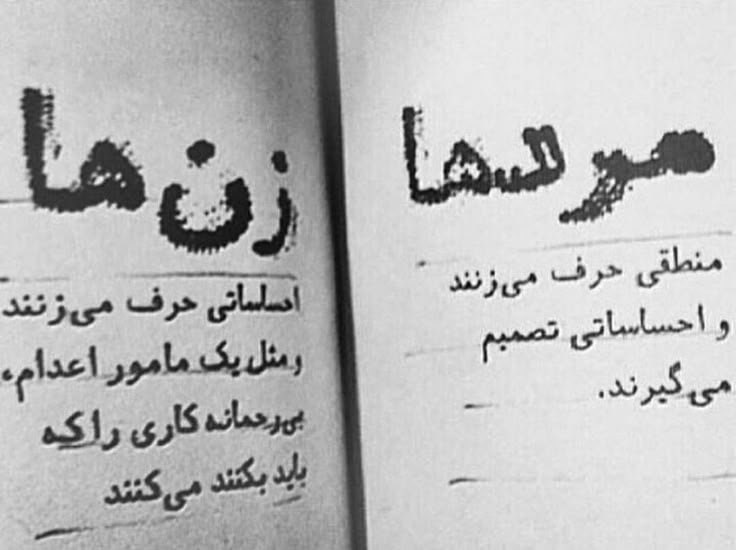 مردها
منطقی حرف می‌زنند
و احساساتی تصمیم
می‌گیرند.
زن‌ها
احساساتی حرف می‌زنند
و مثل یک مامور اعدام،
بی‌رحمانه کاری را که
باید بکنند می‌کنند